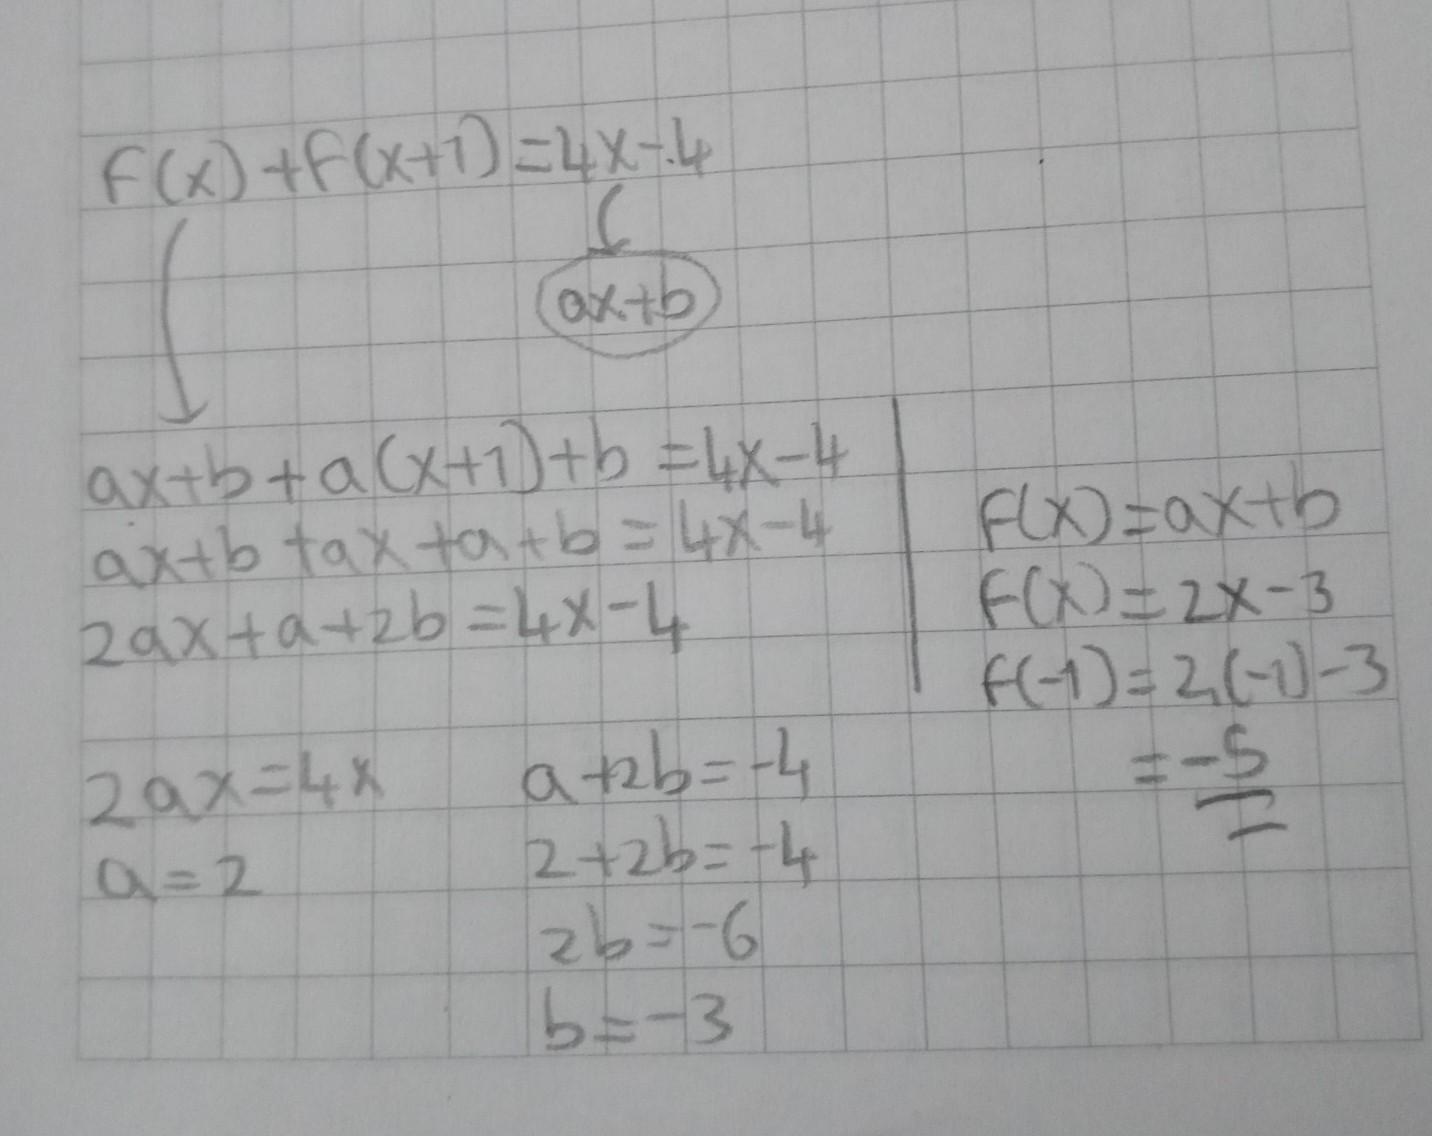 f(x)+f(x+1)=4x-4
ax+b
ax+b+a(x+1)+b=4x-4
ax+b+ax+a+b=4x-4
2ax+a+2b=4x-4
2ax=4x
a=2
a+2b=-4
2+2b=-4
2b=-6
b=-3
f(x)=ax+b
f(x)=2x-3
f(-1)=2.(-1)-3
=-5